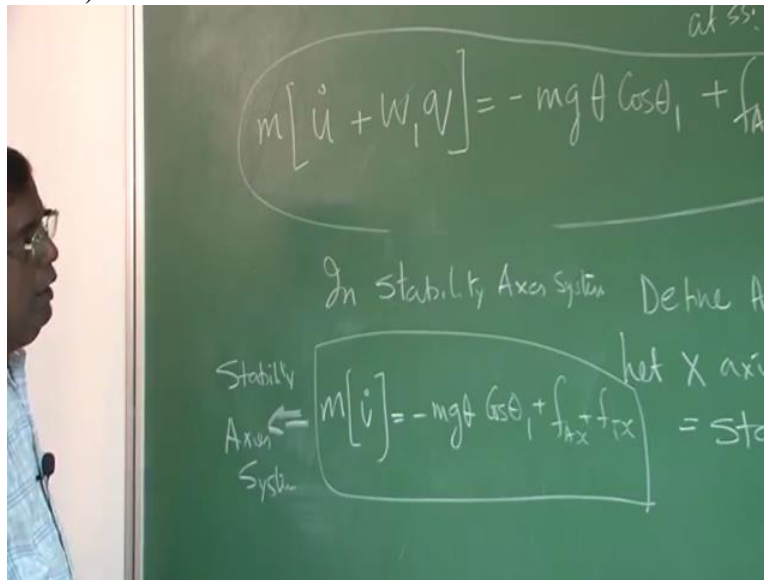 at ss:
m[u̇ + W₁q] = - mgθ Cosθ₁ + f_A
In Stability Axes System Define A
Let X axi
Stability
Axes
System
m[u̇] = -mgθ Cosθ₁ + f_Ax + f_Tx
= sta